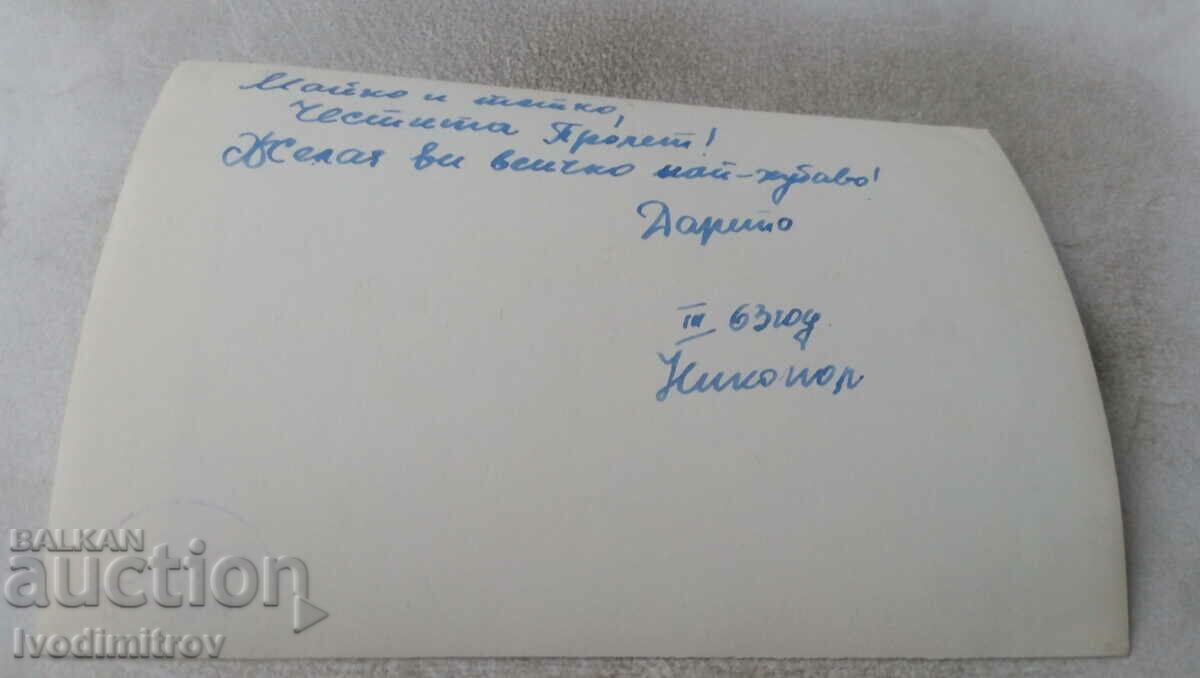 Майко и татко,
Честита Пролет!
Желая ви всичко най-хубаво!
III 63 год
Никопол
BALKAN
auction
Ivodimitrov